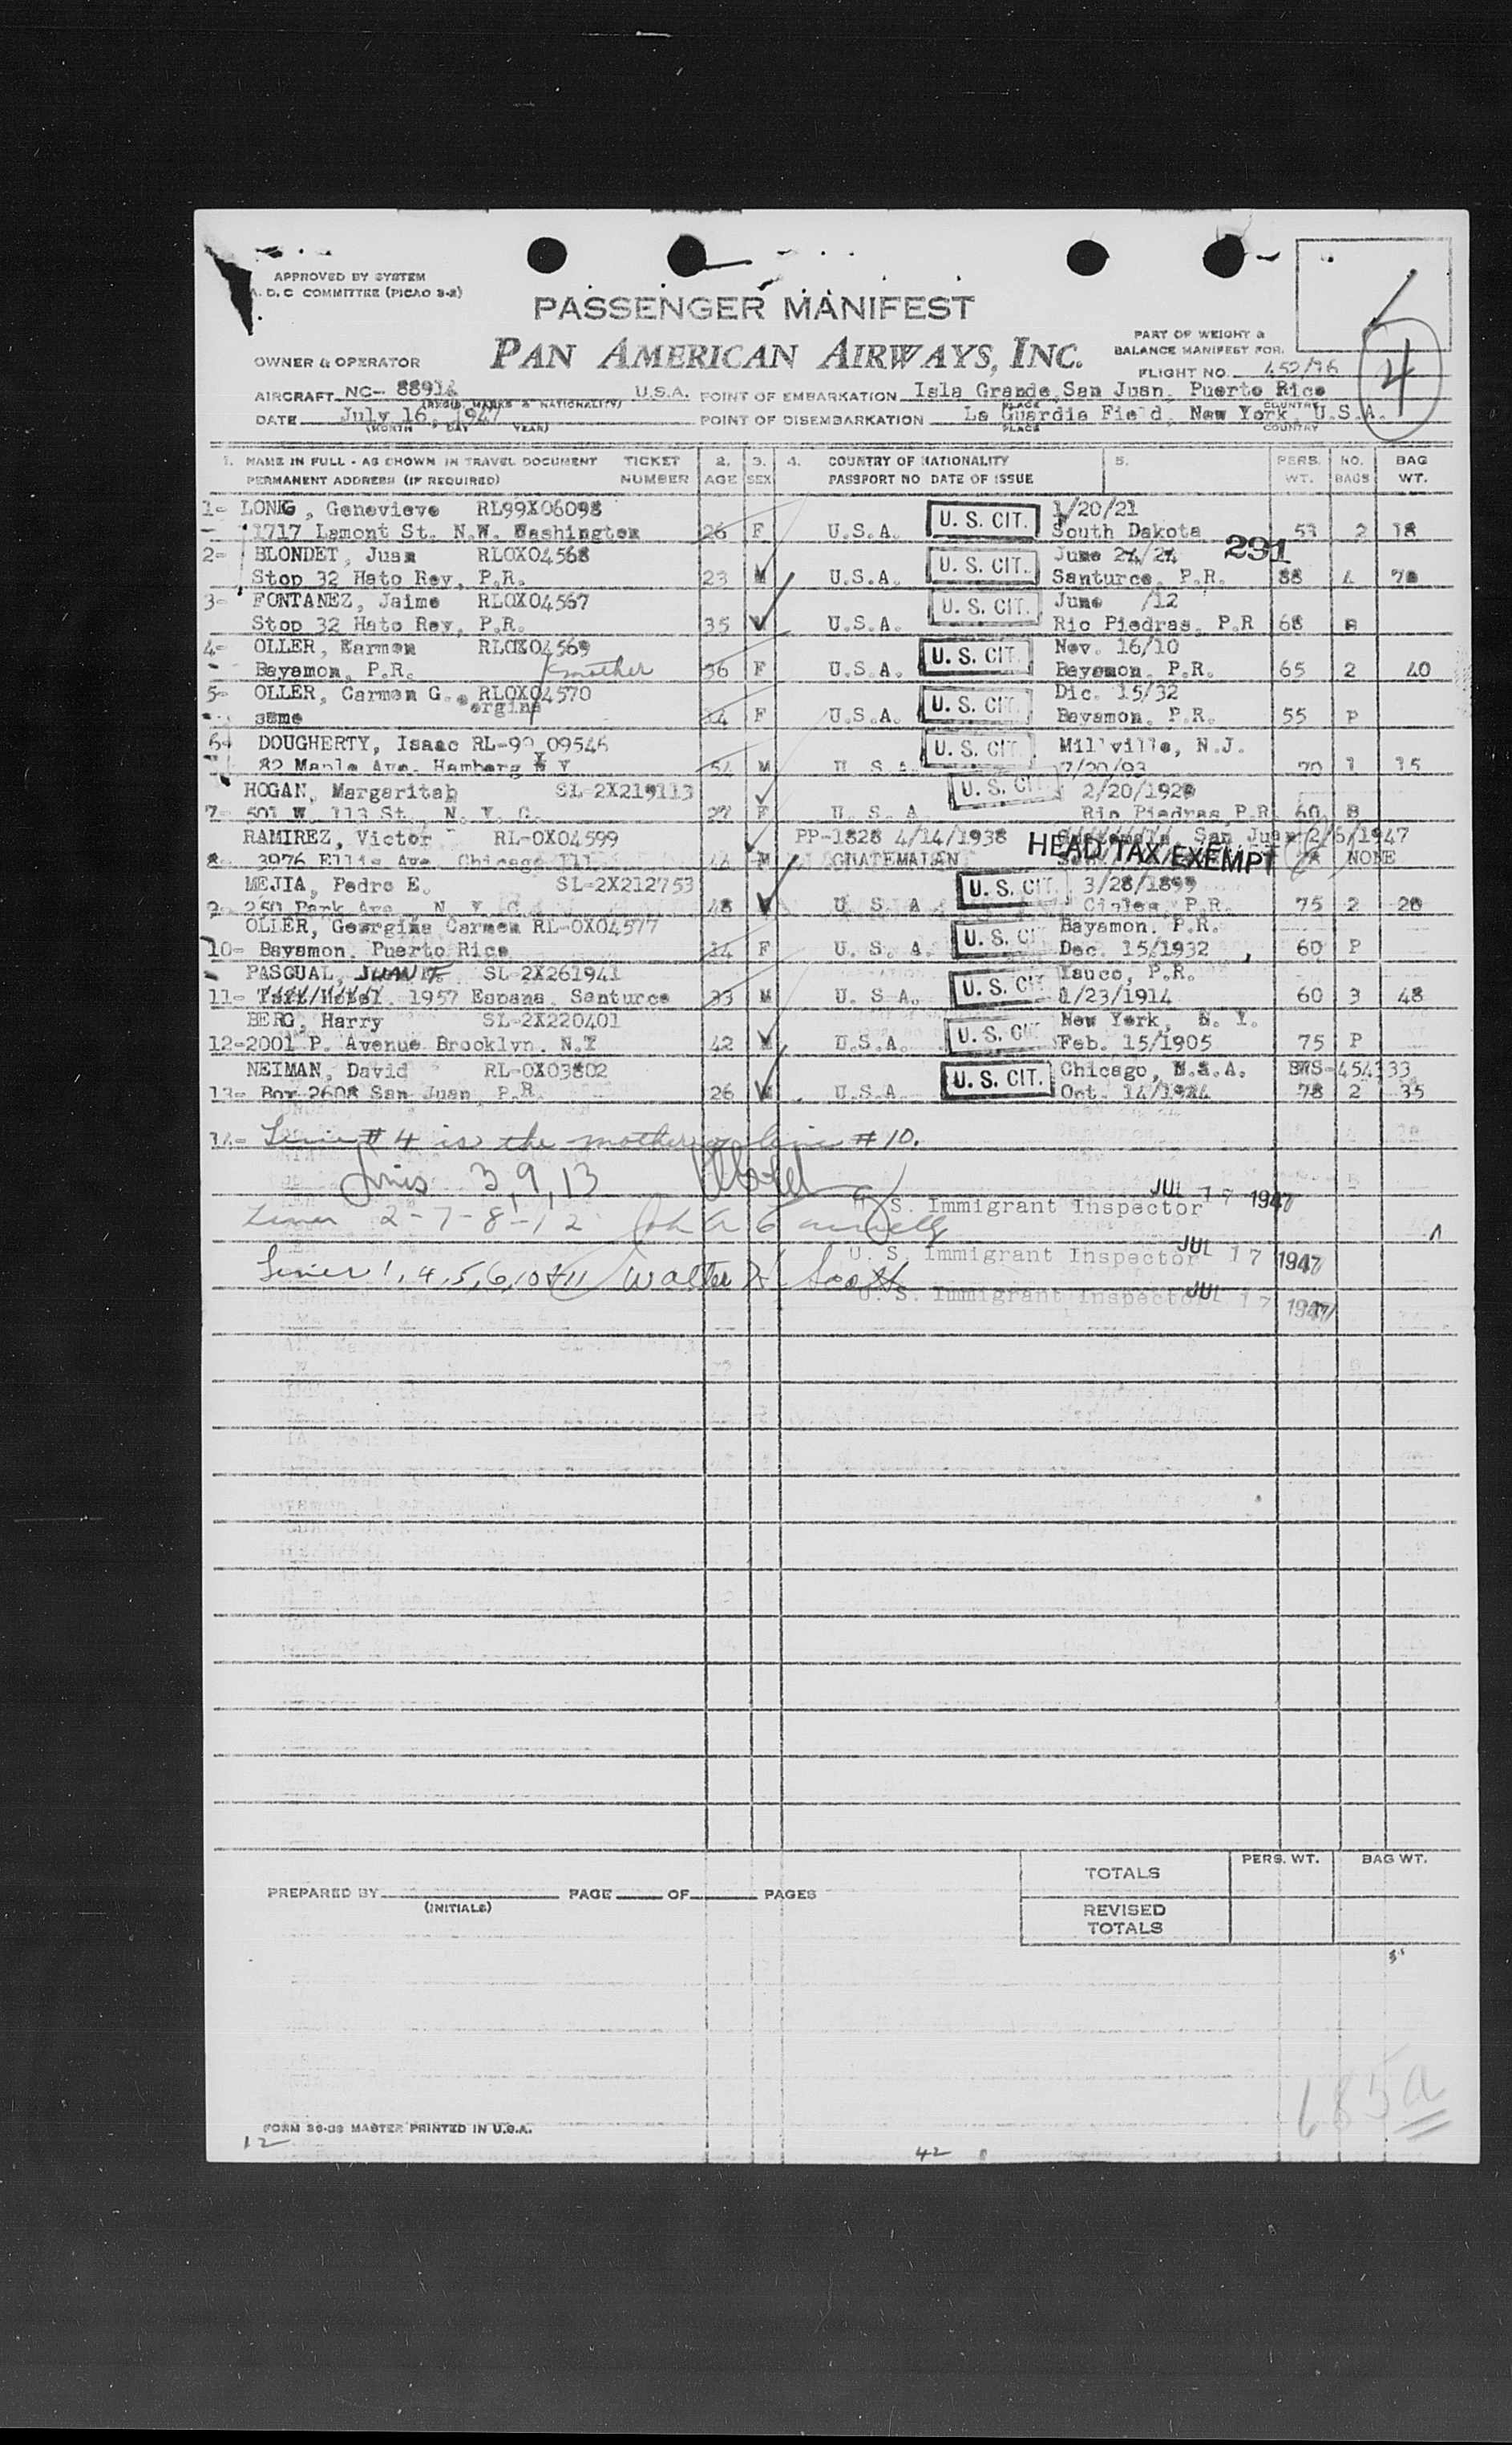 APPROVED BY SYSTEM
A. D. C COMMITTEE (PICAO 3-2)
PASSENGER MANIFEST
PART OF WEIGHT &
BALANCE MANIFEST FOR.
OWNER & OPERATOR PAN AMERICAN AIRWAYS, INC.
FLIGHT NO. 452/16
4
AIRCRAFT NC- 88914 U.S.A. POINT OF EMBARKATION Isla Grande, San Juan, Puerto Rico
(REGIS. MARKS & NATIONALITY) PLACE COUNTRY
DATE July 16, 1947 POINT OF DISEMBARKATION La Guardia Field, New York, U.S.A.
(MONTH DAY YEAR) PLACE COUNTRY
1. NAME IN FULL - AS SHOWN IN TRAVEL DOCUMENT TICKET 2. 3. 4. COUNTRY OF NATIONALITY 5. PERS. NO. BAG
PERMANENT ADDRESS (IF REQUIRED) NUMBER AGE SEX PASSPORT NO DATE OF ISSUE WT. BAGS WT.
1- LONG, Genevieve RL99X06098 U. S. CIT. 1/20/21
1717 Lamont St. N.W. Washington 26 F U.S.A. South Dakota 53 2 18
2- BLONDET, Juan RLOX04568 U. S. CIT. June 24/24 291
Stop 32 Hato Rey, P.R. 23 M U.S.A. Santurce, P.R. 88 4 78
3- FONTANEZ, Jaime RLOX04567 U. S. CIT. June /12
Stop 32 Hato Rey, P.R. 35 U.S.A. Rio Piedras, P.R 68 B
4- OLLER, Karmen RLOX04569 U. S. CIT. Nov. 16/10
Bayamon, P.R. mother 36 F U.S.A. Bayamon, P.R. 65 2 40
5- OLLER, Carmen G. RLOX04570 U. S. CIT. Dic. 15/32
eorgina
same 14 F U.S.A. Bayamon, P.R. 55 P
6- DOUGHERTY, Isaac RL-99X09546 U. S. CIT Millville, N.J.
82 Maple Ave. Hamberg N Y 54 M U S A. 7/20/93 70 1 15
HOGAN, Margaritah SL-2X219113 U. S. CIT 2/20/1920
7- 501 W. 113 St., N. Y. C. 27 F U. S. A Rio Piedras, P.R 60 B
RAMIREZ, Victor RL-0X04599 PP-1828 4/14/1938 San Juan 2/6/1947
8- 3976 Ellis Ave. Chicago Ill 44 M GUATEMALAN HEAD TAX EXEMPT 78 NONE
MEJIA, Pedro E. SL-2X212753 U. S. CIT 3/28/1899
9- 250 Park Ave. N. Y. C 48 U S A Ciales, P.R. 75 2 28
OLLER, Georgina Carmen RL-0X04577 U. S. CI Bayamon, P.R.
10- Bayamon, Puerto Rico 14 F U. S. A. Dec. 15/1932 60 P
PASCUAL, JUAN F. SL-2X261941 U. S. CI Yauco, P.R.
11- 1957 Espana, Santurce 33 M U. S A. 1/23/1914 60 3 48
BERG, Harry SL-2X220401 U. S. CI New York, N. Y.
12- 2001 P. Avenue Brooklyn, N.Y 42 M U.S.A. Feb. 15/1905 75 P
NEIMAN, David RL-0X03802 U. S. CIT. Chicago, U.S.A. BWS-454333
13- Box 2608 San Juan, P.R. 26 M U.S.A. Oct. 14/1924 78 2 35
14- Line #4 is the mother of line #10.
Lines 3, 9, 13
U. S. Immigrant Inspector JUL 17 1947
Lines 2-7-8-12 John A
U. S. Immigrant Inspector JUL 17 1947
Lines 1, 4, 5, 6, 10 & 11 Walter H. Scott
U. S. Immigrant Inspector JUL 17 1947
TOTALS PERS. WT. BAG WT.
PREPARED BY PAGE OF PAGES
(INITIALS)
REVISED
TOTALS
685a
FORM 36-09 MASTER PRINTED IN U.S.A.
12
42